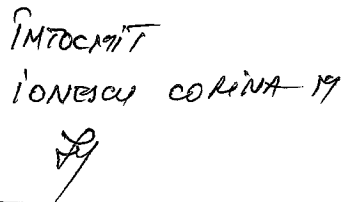 ÎNTOCMIT
IONESCU CORINA M